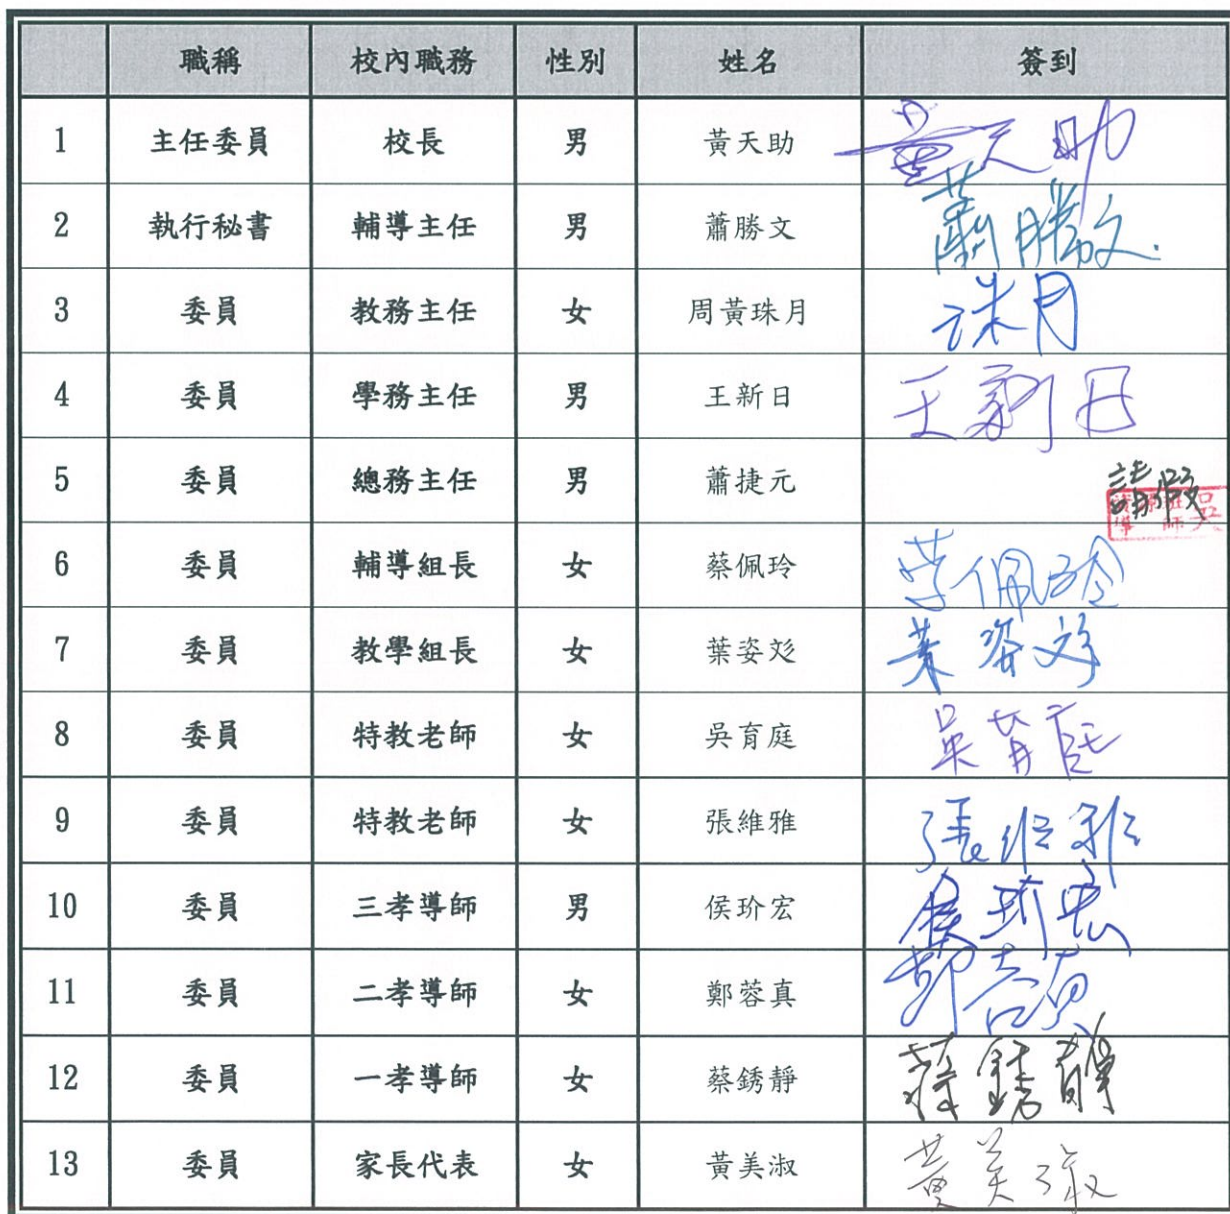 職稱 校內職務 性別 姓名 簽到
1 主任委員 校長 男 黃天助 黃天助
2 執行秘書 輔導主任 男 蕭勝文 蕭勝文.
3 委員 教務主任 女 周黃珠月 珠月
4 委員 學務主任 男 王新日 王新日
5 委員 總務主任 男 蕭捷元 請假
6 委員 輔導組長 女 蔡佩玲 蔡佩玲
7 委員 教學組長 女 葉姿彣 葉姿彣
8 委員 特教老師 女 吳育庭 吳育庭
9 委員 特教老師 女 張維雅 張維雅
10 委員 三孝導師 男 侯玠宏 侯玠宏
11 委員 二孝導師 女 鄭蓉真 鄭蓉真
12 委員 一孝導師 女 蔡銹靜 蔡銹靜
13 委員 家長代表 女 黃美淑 黃美淑